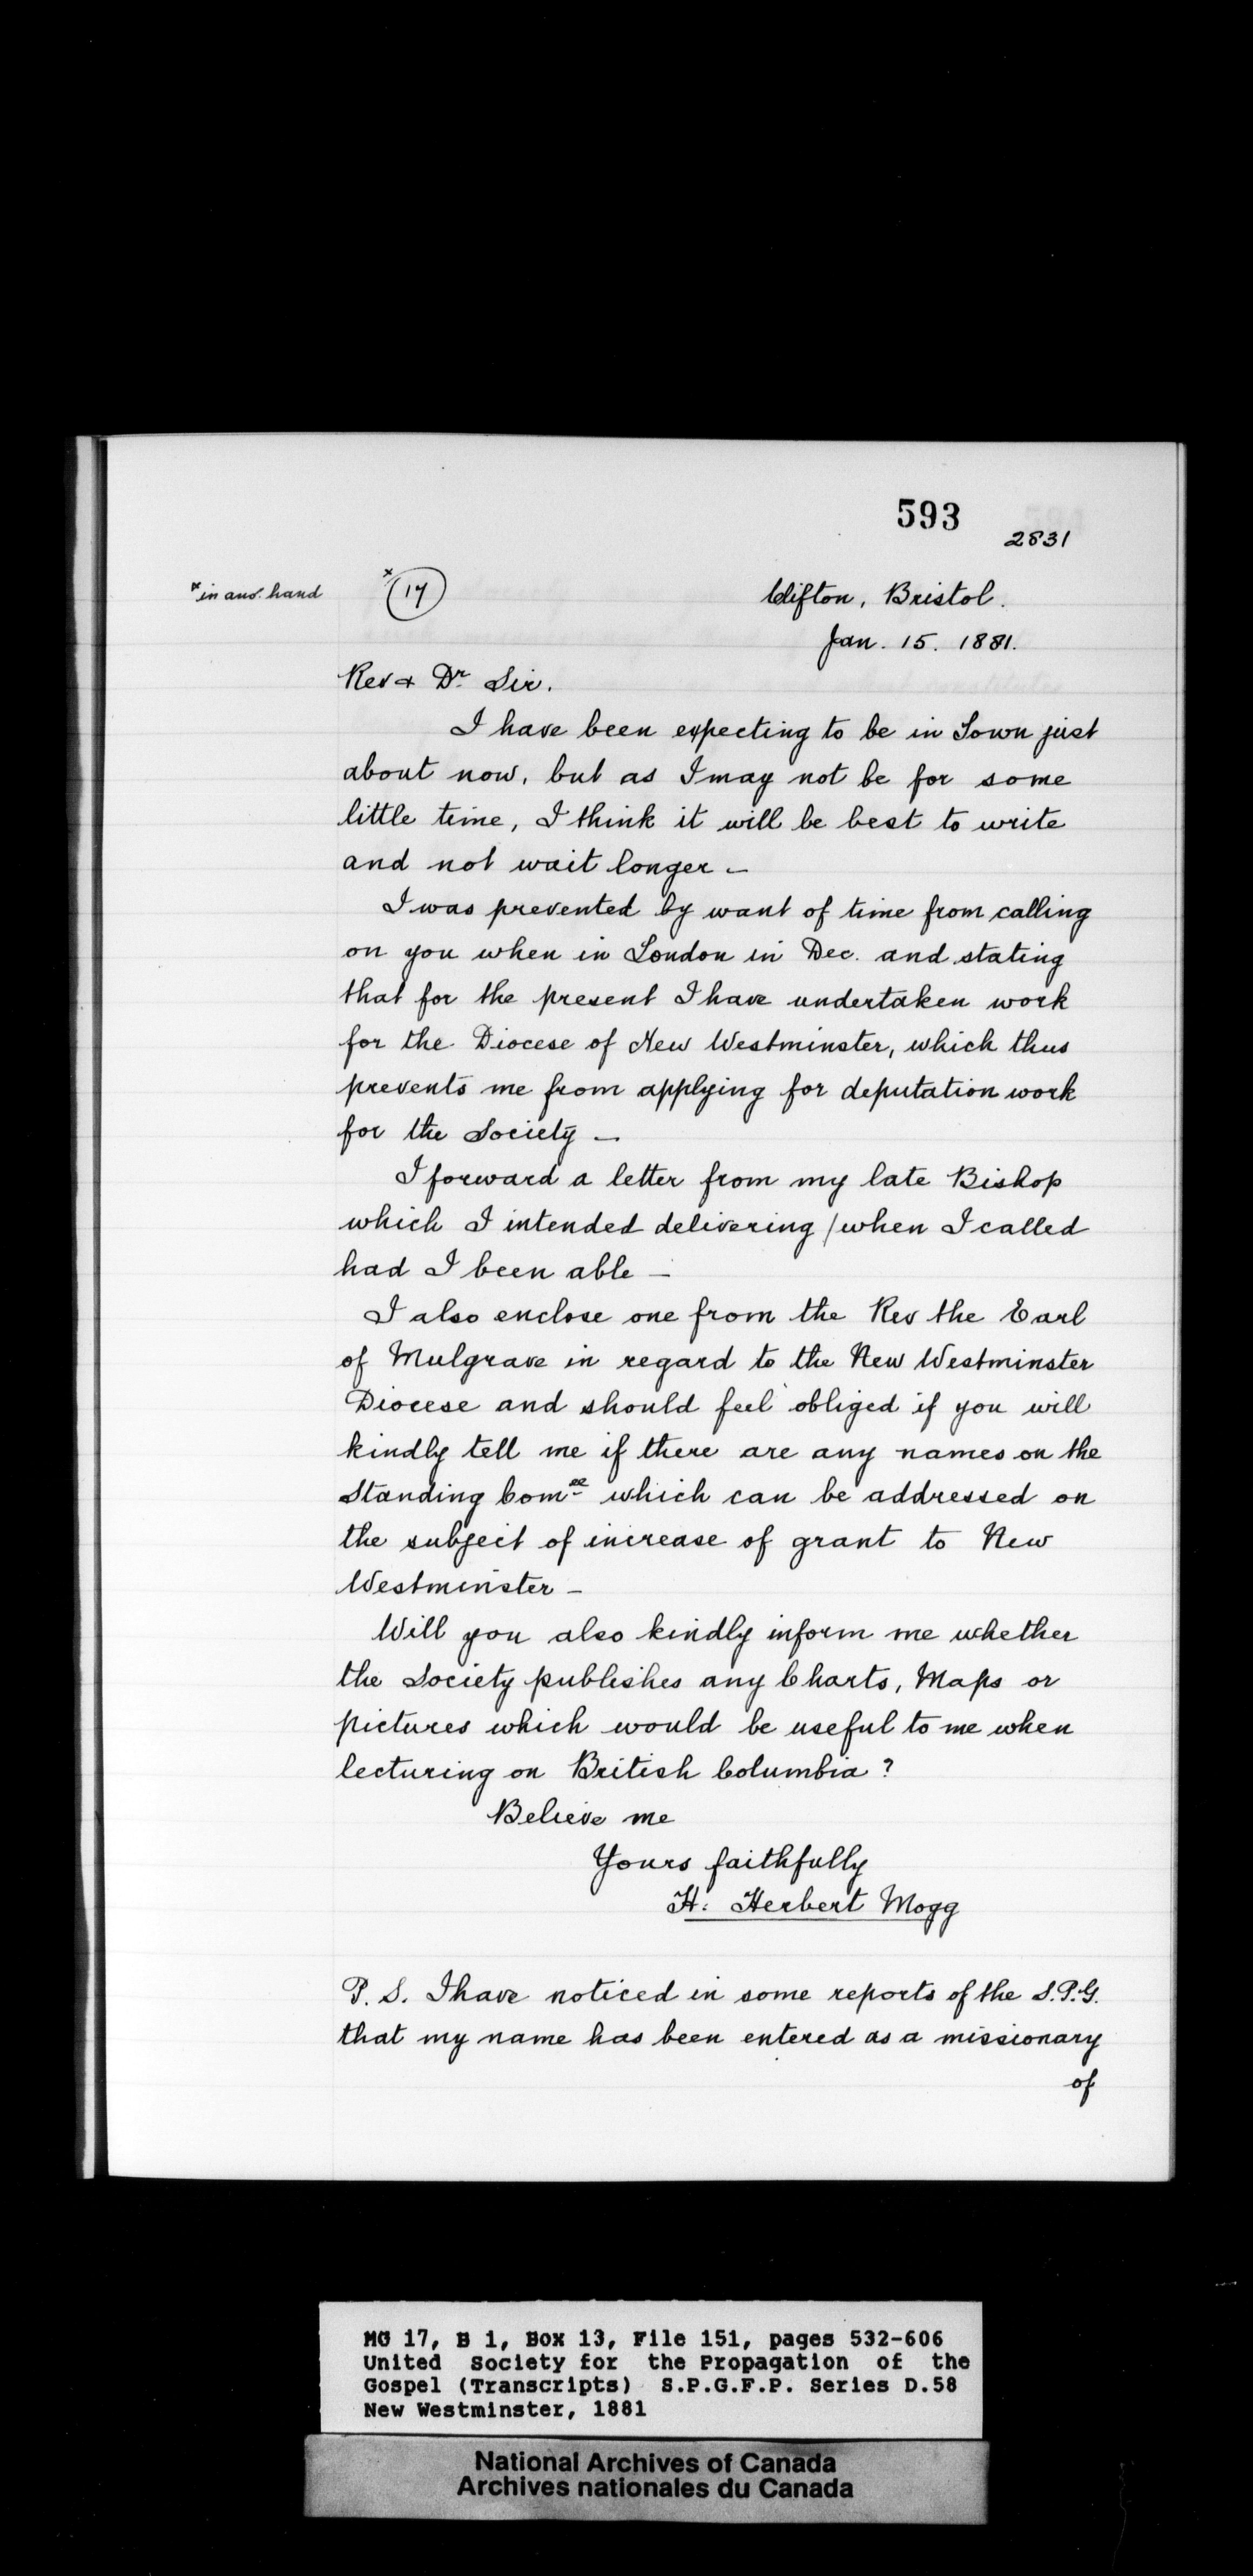 593
2831
*in ano. hand
× (17)
Clifton, Bristol.
Jan. 15. 1881.
Rev & Dr Sir.
I have been expecting to be in Town just
about now, but as I may not be for some
little time, I think it will be best to write
and not wait longer –
I was prevented by want of time from calling
on you when in London in Dec. and stating
that for the present I have undertaken work
for the Diocese of New Westminster, which thus
prevents me from applying for deputation work
for the Society –
I forward a letter from my late Bishop
which I intended delivering / when I called
had I been able –
I also enclose one from the Rev the Earl
of Mulgrave in regard to the New Westminster
Diocese and should feel obliged if you will
kindly tell me if there are any names on the
Standing Comee which can be addressed on
the subject of increase of grant to New
Westminster –
Will you also kindly inform me whether
the Society publishes any Charts, Maps or
pictures which would be useful to me when
lecturing on British Columbia?
Believe me
Yours faithfully
H: Herbert Mogg
P. S. I have noticed in some reports of the S.P.G.
that my name has been entered as a missionary
of
MG 17, B 1, Box 13, File 151, pages 532-606
United Society for the Propagation of the
Gospel (Transcripts) S.P.G.F.P. Series D.58
New Westminster, 1881
National Archives of Canada
Archives nationales du Canada